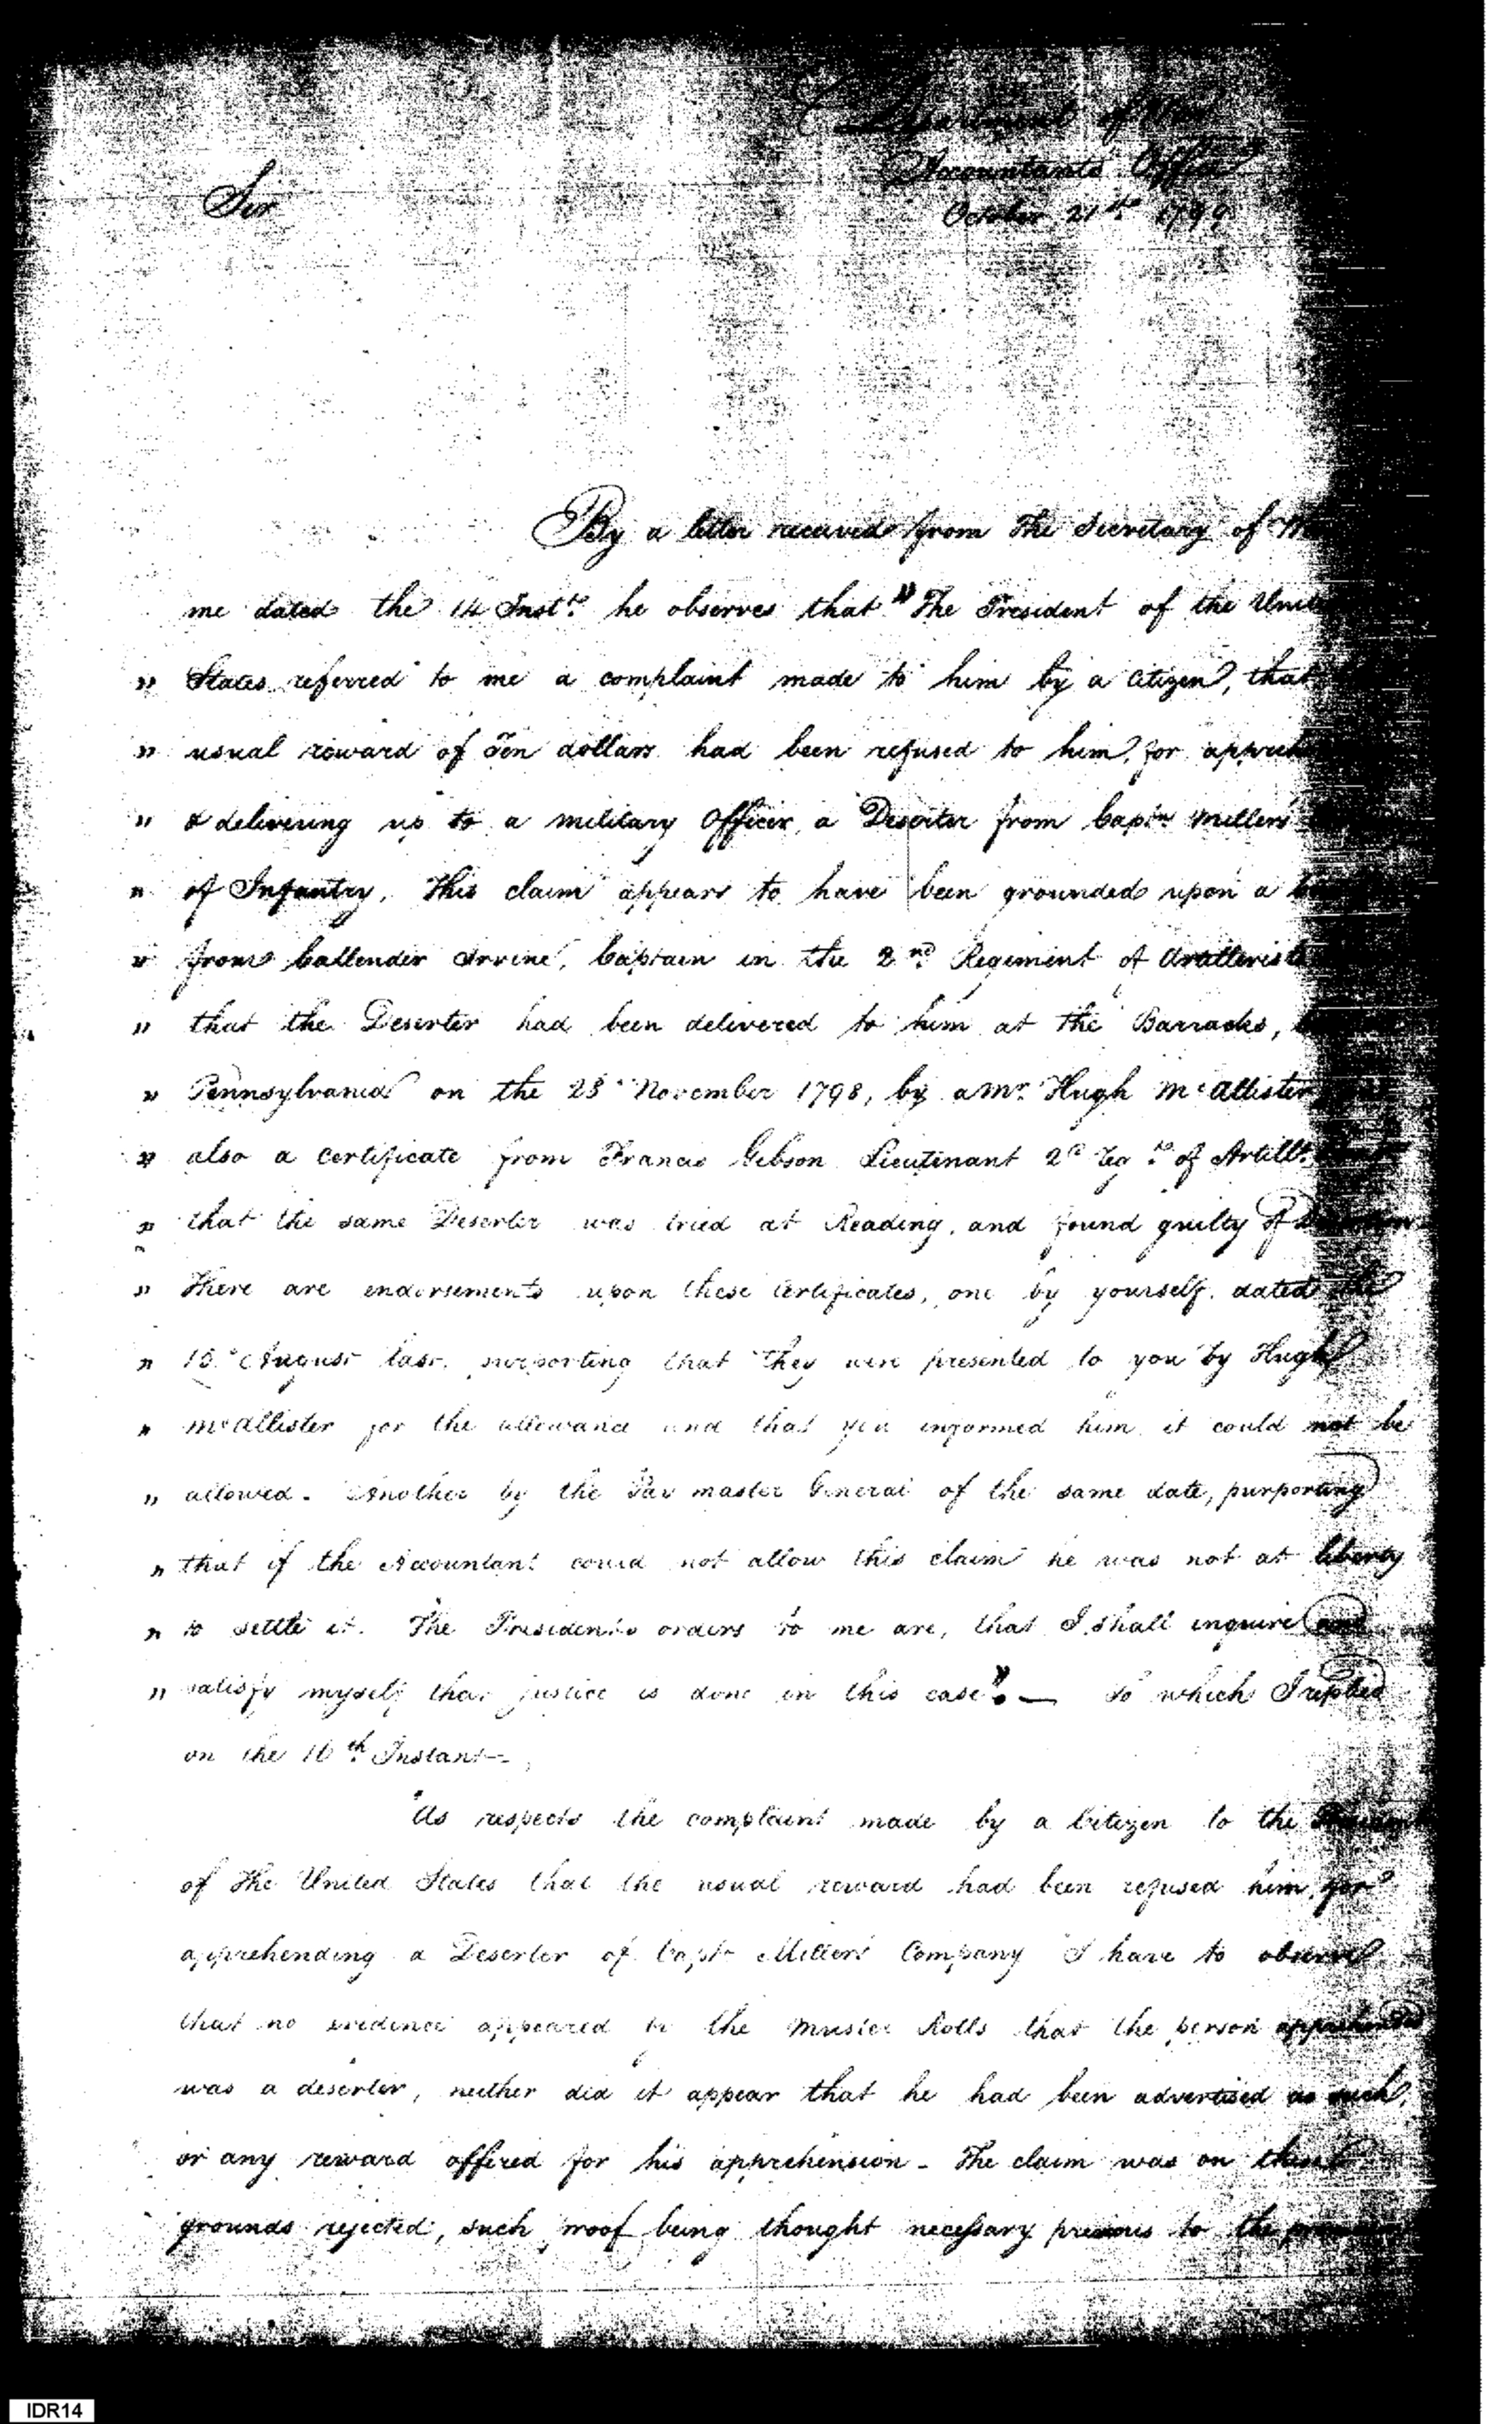 Department of War
Accountants Office
October 21st 1799
Sir
By a letter received from The Secretary of
me dated the 14 Inst. he observes that "The President of the Unite
" States referred to me a complaint made to him by a Citizen, that
" usual reward of Ten dollars had been refused to him, for
" & delivering up to a military Officer, a Deserter from Captn Millers
" of Infantry. This claim appears to have been grounded upon a
" from Callender Irvine, Captain in the 2nd Regiment of Artillerists
" that the Deserter had been delivered to him at the Barracks,
" Pennsylvania on the 23d November 1798, by a Mr. Hugh McAllister
" also a certificate from Francis Gibson Lieutenant 2d Regt of Artille.
" that the same Deserter was tried at Reading, and found guilty of
" There are endorsements upon these Certificates, one by yourself. dated the
" August last. purporting that they were presented to you by Hugh
" McAllister for the allowance and that you informed him it could not be
" allowed. Another by the Pay master General of the same date, purporting
" that if the Accountant could not allow this claim he was not at liberty
" to settle it. The Presidents orders to me are, that I shall inquire and
" satisfy myself that justice is done in this case". — To which I replied
on the 16th Instant
"As respects the complaint made by a Citizen to the President
of the United States that the usual reward had been refused him, for
apprehending a Deserter of Captn Millers Company I have to observe
that no evidence appeared by the Muster Rolls that the person apprehended
was a deserter, neither did it appear that he had been advertised as such,
or any reward offered for his apprehension - The claim was on these
grounds rejected, such proof being thought necessary previous to the
IDR14